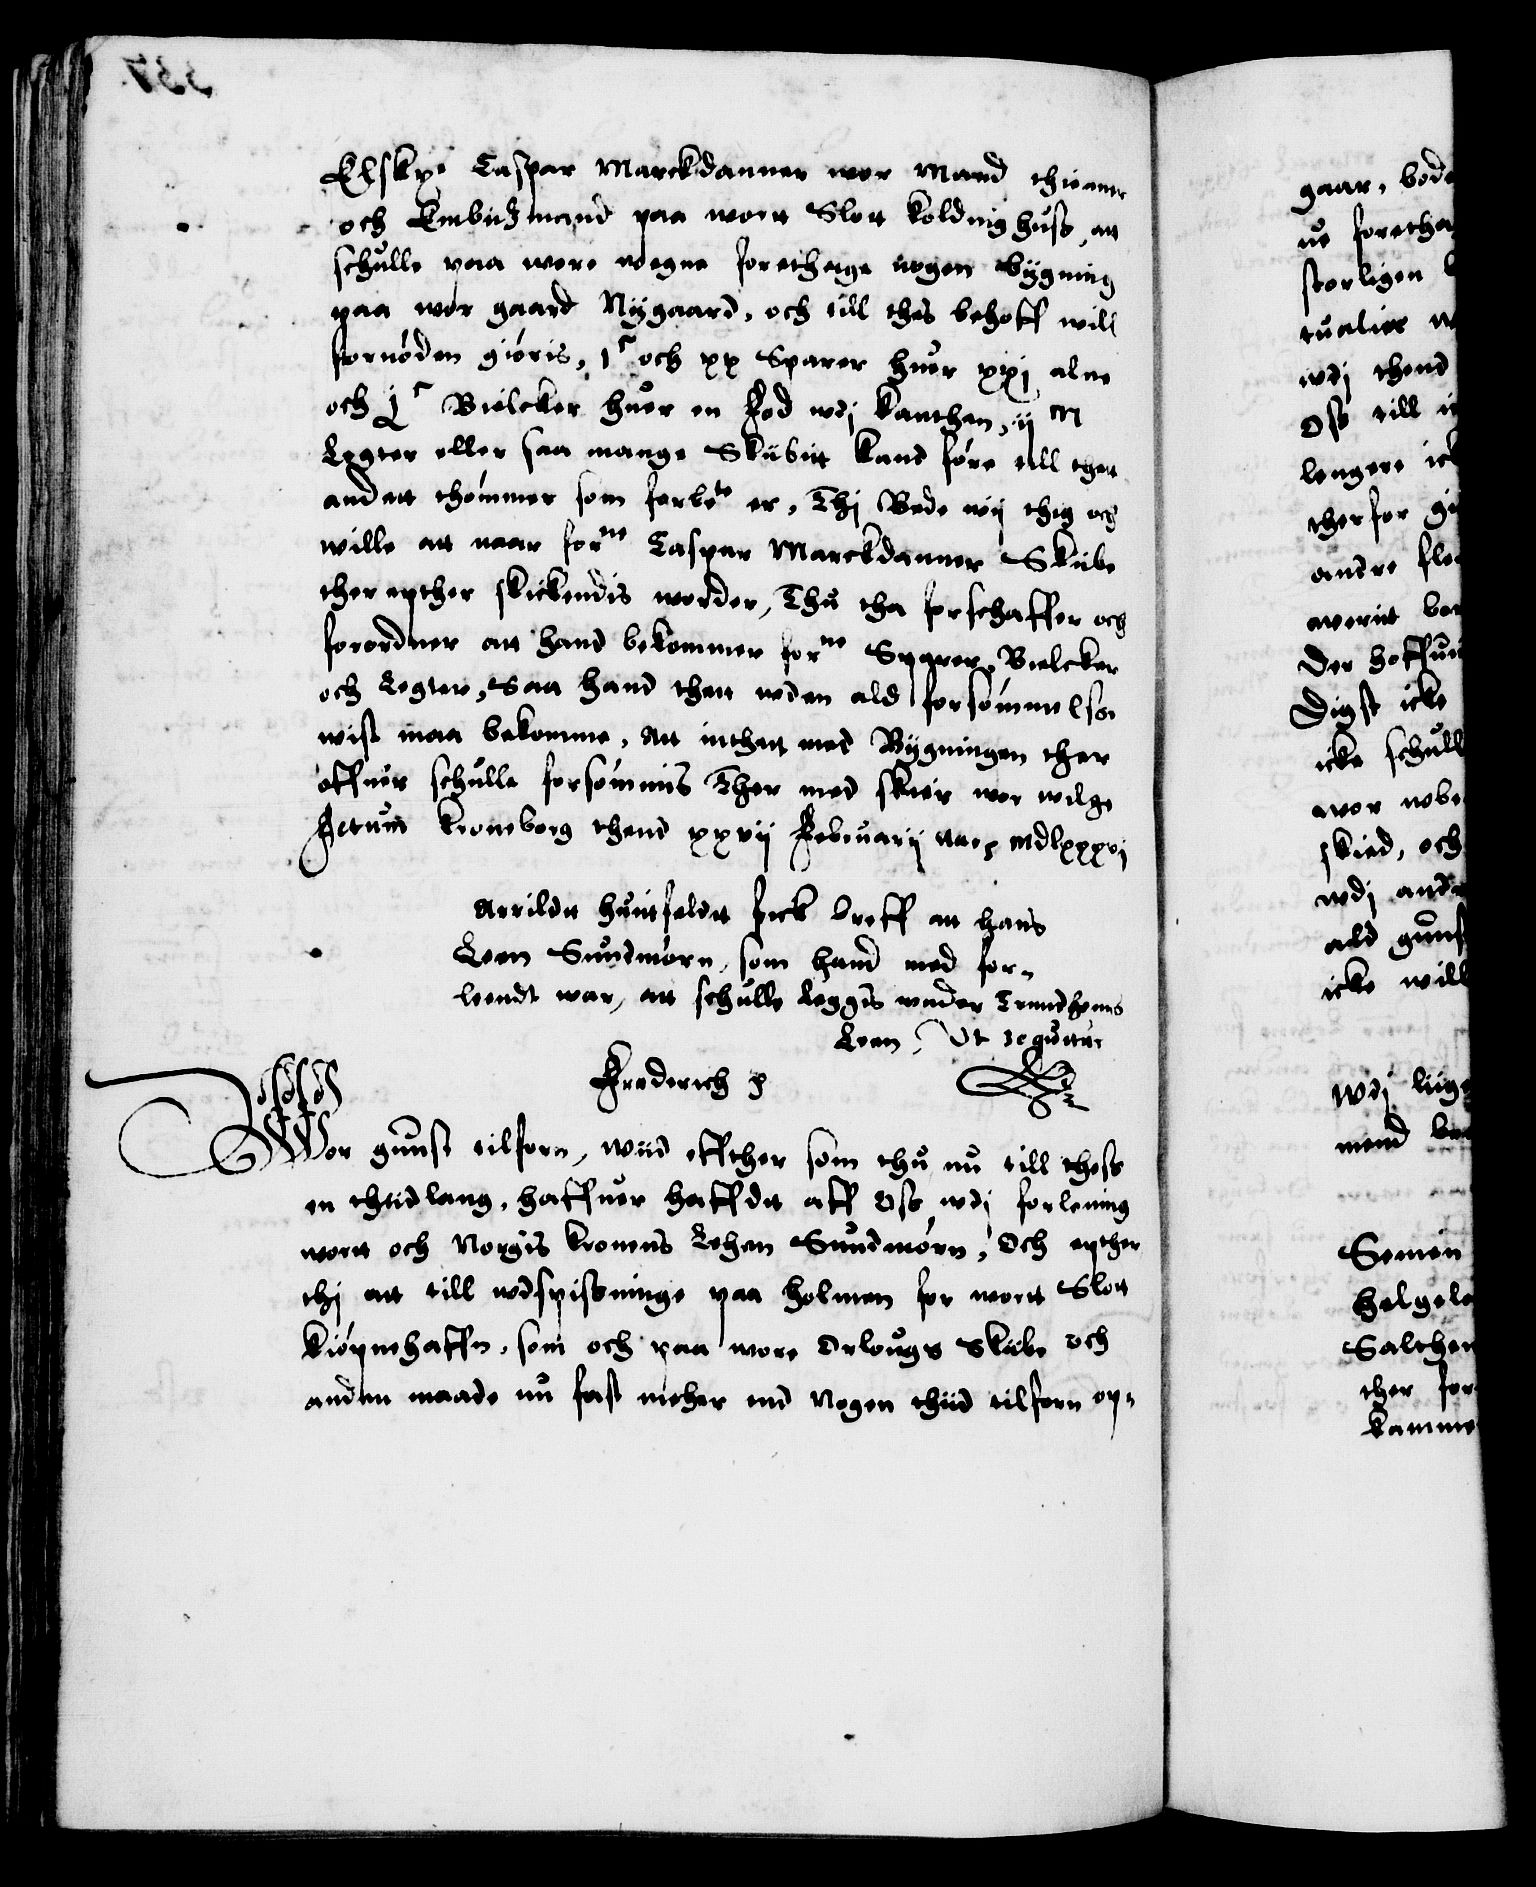 Elskee Caspar Marckdanner wor Mand thienner
och Embitzmand paa wortt Slott koldinghuss, att
schulle paa wore wegne forethage nogen bygning
paa wor gaard Nygaard, och till thes behoff will
fornöden giöris, 1c och xx Sparer huer xixj alne
och jc Bielcker huer en Fod wdj kanthen, ij M
Legter eller saa mange Skibitt kand före till thett
andett thömmer som forbete er, Thj Bede wij thig och
wille att naar forne Caspar Marckdanner Skibe
ther epther skickendis worder, Thu tha forschaffer och
forordner att hand bekommer forne Sparer, Bielcker
och Legter, Saa hand thett uden ald forsömmelse
wist maa bekomme, Att inthett med Bygningen ther
offuer schulle forsömmis Ther med skeer wor wilge
Actum kroneborg thend xxvij Februarij Aar mdlxxxvj
Arrildtt huittfeldtt fick breff att hans
Leen Sundmörn, som hand med for-
leendt war, att schulle leggis under Trundhiems
Leen, Ut sequitur
Frederich
Wor gunst tilforn, wiid effther som thu nu till thess
en thiidlang, haffuer hafftt aff Oss wdj forlening
wortt och Norgis kronens Lehen Sundmörn, Och epther
thj att till udspissninge paa holmen for wortt Slott
kiöpnehaffn, som och paa wore Orlougs Skibe och
anden maade nu fast meher end Nogen thiid tilforn op-
gaar, bode
ue foretha
storligen
tualier
wdj thend
Oss till
lengere
therfor
andre
Der hoffui
Digst icke
icke schull
wor
skied, och
wdj
ald gunst
icke will
Wdj liige
mend
Semen
helgela
Salthen
ther for
kamme